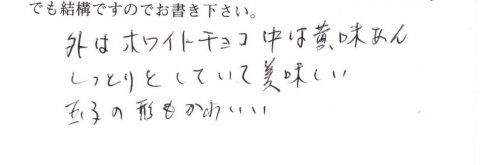 でも結構ですのでお書き下さい。
外はホワイトチョコ中は黄味あん
しっとりとしていて美味しい
玉子の形もかわいい